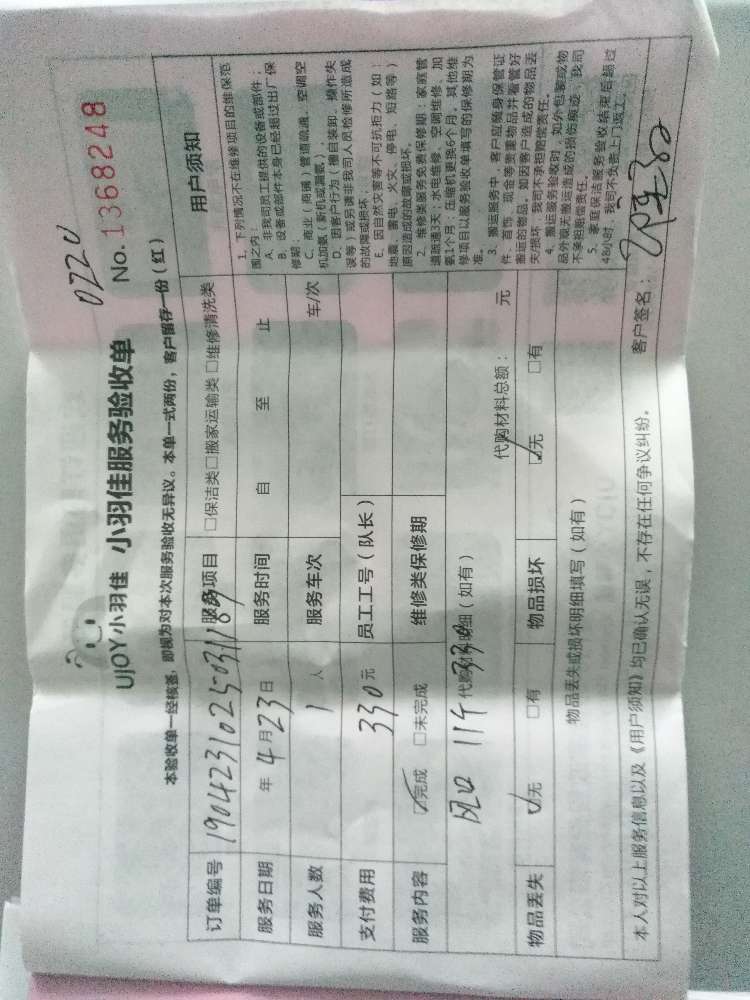 0220
UJOY小羽佳 小羽佳服务验收单 No.1368248
本验收单一经核签，即视为对本次服务验收无异议。本单一式两份，客户留存一份（红）
订单编号 1904231025-031189 服务项目 □保洁类□搬家运输类□维修清洗类
服务日期 年4月23日 服务时间 自 至 止
服务人数 1人 服务车次 车/次
支付费用 330元 员工工号（队长）
服务内容 ☑完成 □未完成 维修类保修期
风口 11个 330
代购材料明细（如有） 代购材料总额： 元
物品丢失 ☑无 □有 物品损坏 ☑无 □有
物品丢失或损坏明细填写（如有）
用户须知
1、下列情况不在维修项目的维保范
围之内：
A、非我司员工提供的设备或部件；
B、设备或部件本身已经超过出厂保
修期；
C、商业（商铺）管道疏通、空调空
机加氨（新机或漏氨）
D、因客户行为（擅自装卸、操作失
误等）或另请非我司人员检修所造成
的故障或损坏
E、因自然灾害等不可抗拒力（如：
地震、雷电、火灾、停电、短路等）
原因造成的故障或损坏。
2、维修类服务免费保修期：家庭管
道疏通3天；水电维修、空调维修、加
氨1个月；压缩机更换6个月，其他维
修项目以服务验收单填写的保修期为
准。
3、搬运服务中，客户应随身保管证
件、首饰、现金等贵重物品并看管好
搬运的物品。如因客户造成的物品丢
失/损坏，我司不承担赔偿责任。
4、搬运服务验收时，如外包装或物
品外观无搬运造成的损伤痕迹，我司
不承担赔偿责任。
5、家庭保洁服务验收结束后超过
48小时，我司不免费上门返工。
本人对以上服务信息以及《用户须知》均已确认无误，不存在任何争议纠纷。 客户签名：